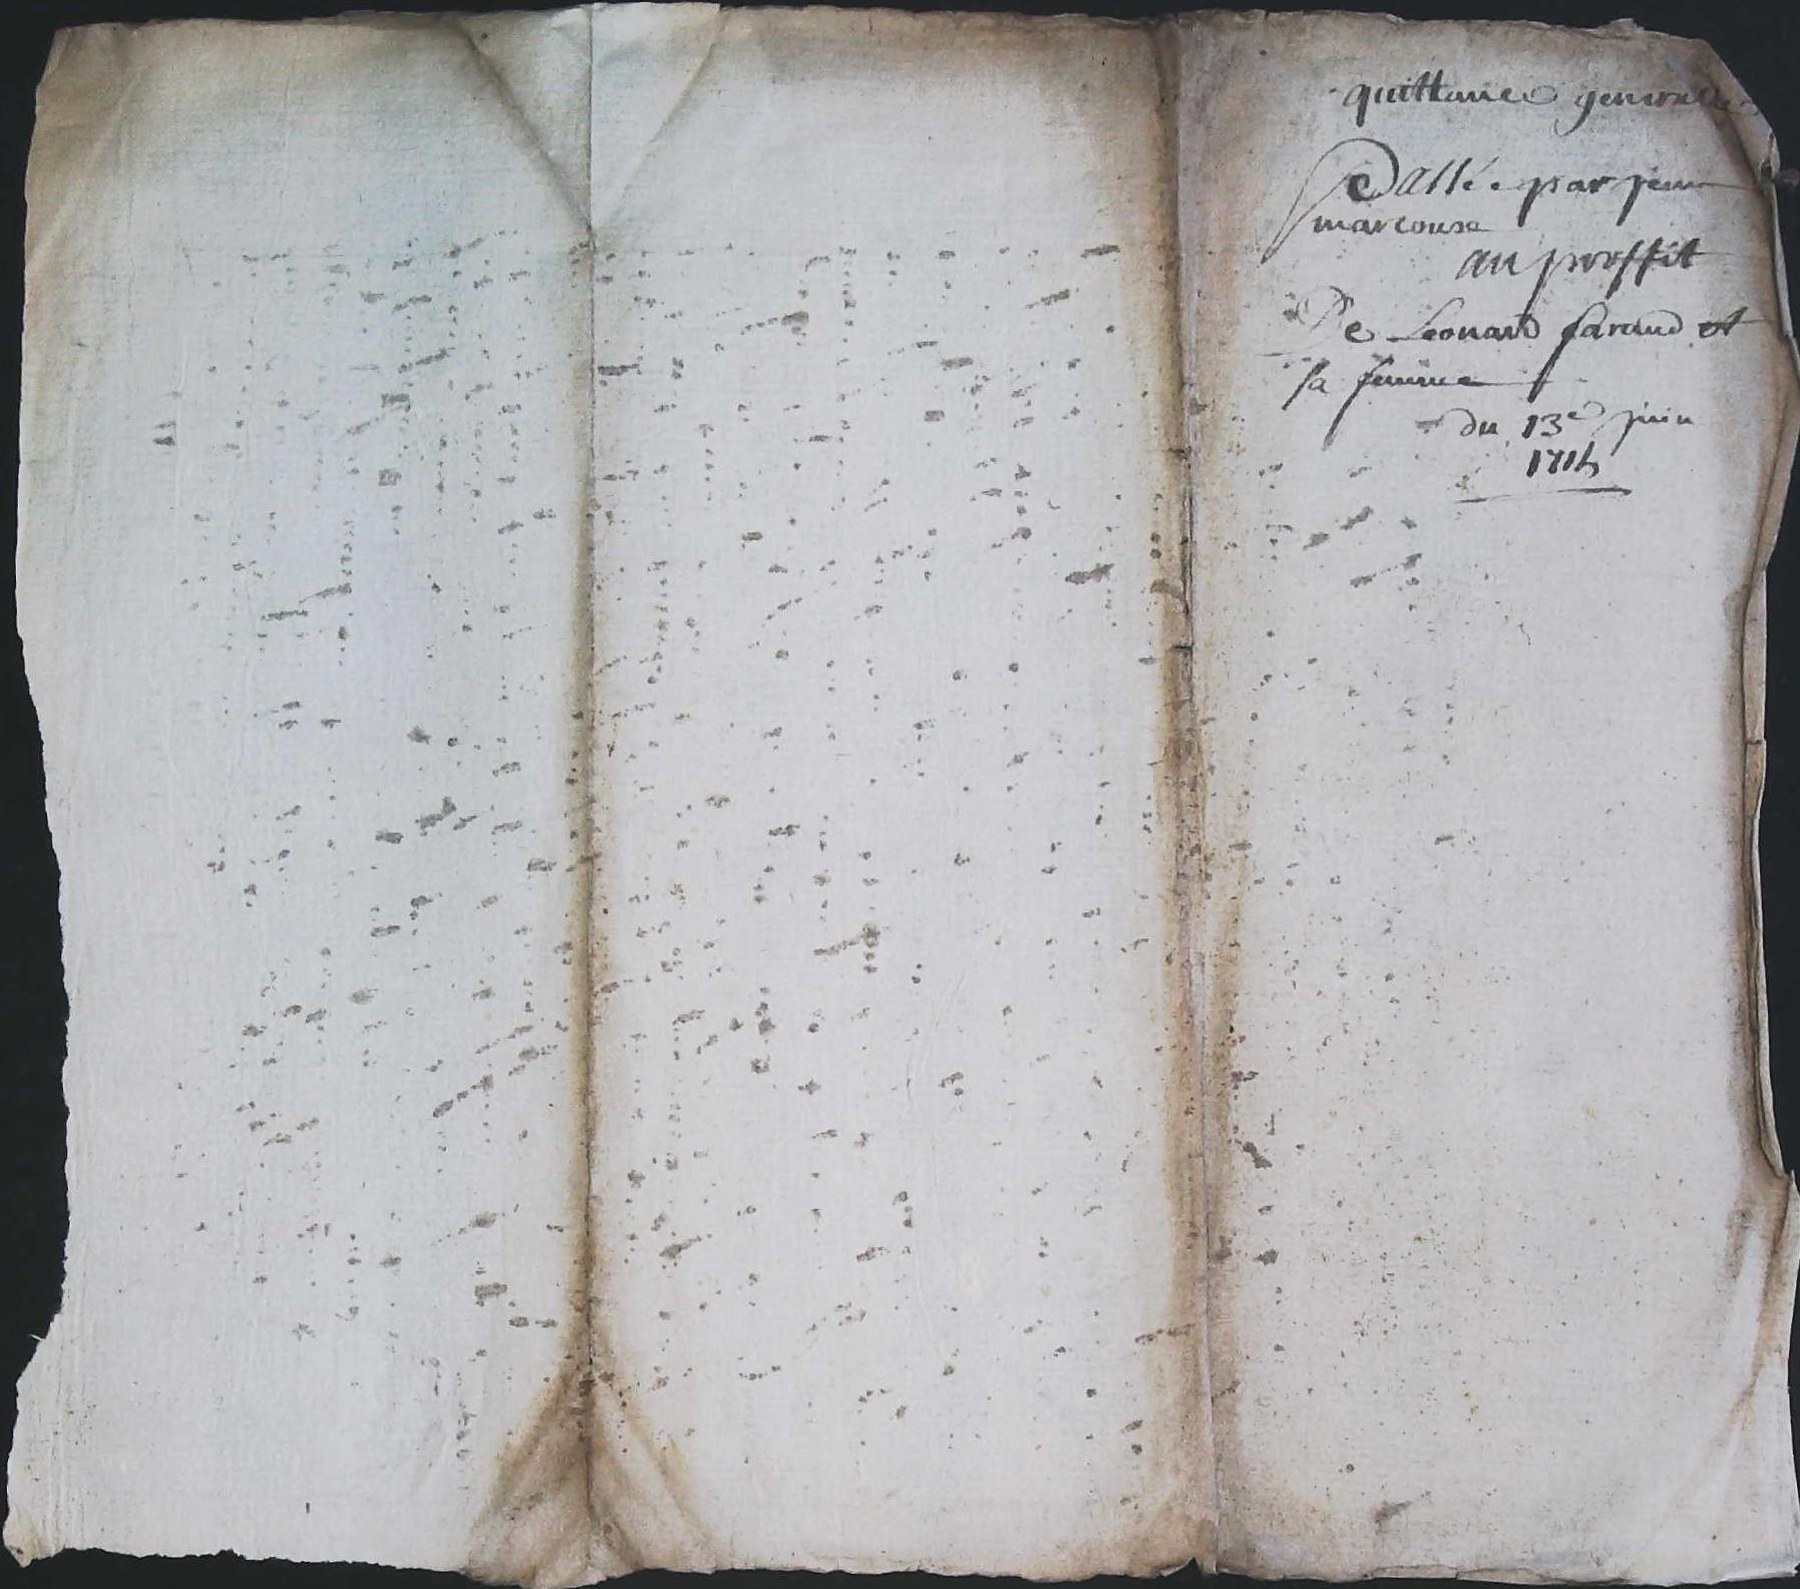 quittance generalle
Passée par jean
marcoux
au proffit
De Leonard faraud et
sa femme
du 13e juin
1714